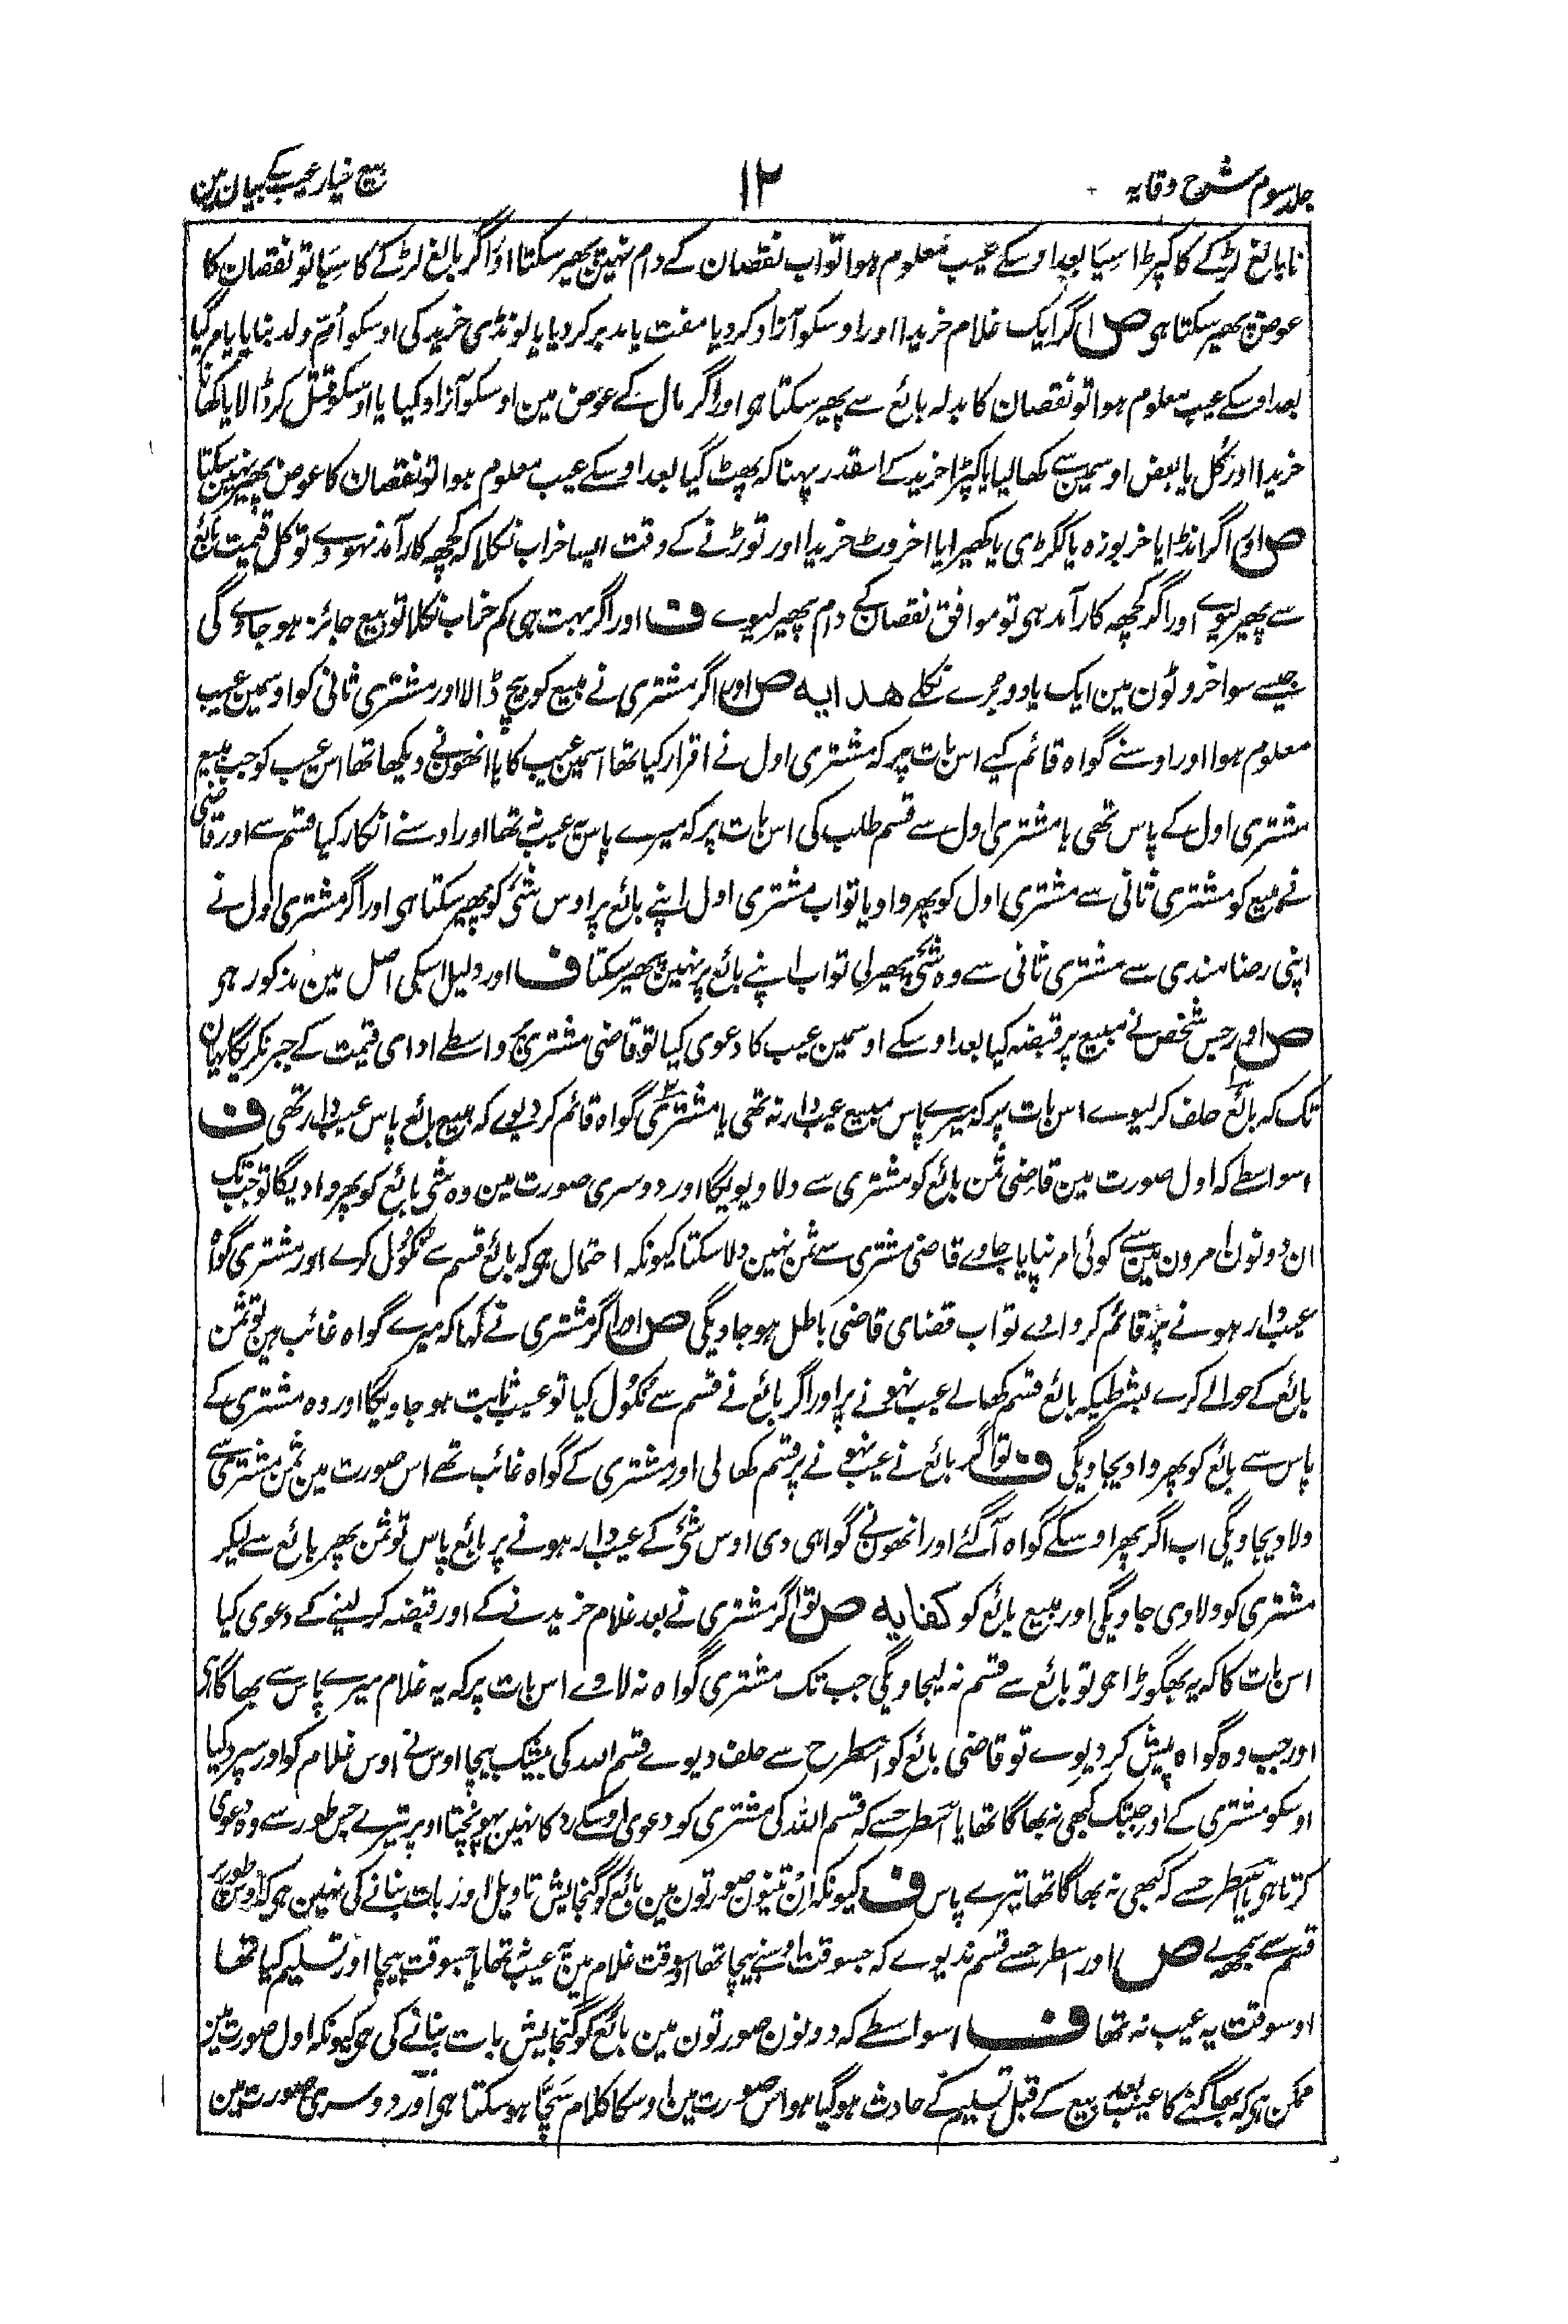 جلد سوم شرح وقایہ
۱۲
بیع خیار عیب کے بیان مین
نابالغ لڑکے کا کپڑا سِیَا بعد اوسکے عیب معلوم ہوا تو اب نقصان کے دام نہین پھیر سکتا اور اگر بالغ لڑکے کا سِیَا تو نقصان کا
عوض پھیر سکتا ہی ص اگر ایک غلام خریدا اور اوسکو آزاد کر دیا مفت یا مدبر کر دیا یا لونڈی خرید کی اوسکو اُمّ ولد بنایا یا مر گیا
بعد اوسکے عیب معلوم ہوا تو نقصان کا بدلہ بائع سے پھیر سکتا ہی اور اگر مال کے عوض مین اوسکو آزاد کیا یا اوسکو قتل کر ڈالا یا کھانا
خریدا اور کُل یا بعض اوسمین سے کھا لیا یا کپڑا خرید کے اسقدر پہنا کہ پھٹ گیا بعد اوسکے عیب معلوم ہوا تو نقصان کا عوض پھیر نہین سکتا
ص اور اگر انڈا یا خربوزہ یا ککڑی یا کھیرا یا اخروٹ خریدا اور توڑنے کے وقت ایسا خراب نکلا کہ کچھ کارآمد نہووے تو کل قیمت بائع
سے پھیر لیوے اور اگر کچھ کارآمد ہی تو موافق نقصان کے دام پھیر لیوے ف اور اگر بہت ہی کم خراب نکلا تو بیع جائز ہو جاوے گی
جیسے سو اخروٹون مین ایک یا دو بُرے نکلے ھدایہ ص اور اگر مشتری نے مبیع کو بیچ ڈالا اور مشتری ثانی کو اوسمین عیب
معلوم ہوا اور اوسنے گواہ قائم کیے اس بات پر کہ مشتری اول نے اقرار کیا تھا اسمین عیب کا یا انھون نے دیکھا تھا اس عیب کو جب مبیع
مشتری اول کے پاس تھی یا مشتری اول سے قسم طلب کی اس بات پر کہ میرے پاس یہ عیب نہ تھا اور اوسنے انکار کیا قسم سے اور قاضی
نے مبیع کو مشتری ثانی سے مشتری اول کو پھروا دیا تو اب مشتری اول اپنے بائع پر اوس شئ کو پھیر سکتا ہی اور اگر مشتری اول نے
اپنی رضامندی سے مشتری ثانی سے وہ شئ پھیر لی تو اب اپنے بائع پر نہین پھیر سکتا ف اور دلیل اسکی اصل مین مذکور ہی
ص اور جس شخص نے مبیع پر قبضہ کیا بعد اوسکے اوسمین عیب کا دعوی کیا تو قاضی مشتری پر واسطے ادای قیمت کے جبر نکریگا یہان
تک کہ بائع حلف کر لیوے اس بات پر کہ میرے پاس مبیع عیب دار نہ تھی یا مشتری گواہ قائم کر دیوے کہ مبیع بائع پاس عیب دار تھی ف
اسواسطے کہ اول صورت مین قاضی ثمن بائع کو مشتری سے دلا دیویگا اور دوسری صورت مین وہ شی بائع کو پھروا دیگا تو جب تک
ان دونون امرون مین سے کوئی امر نپایا جاوے قاضی مشتری سے ثمن نہین دلا سکتا کیونکہ احتمال ہی کہ بائع قسم سے نکُول کرے اور مشتری گواہ
عیب دار ہونے پر قائم کر دواے تو اب قضای قاضی باطل ہو جاویگی ص اور اگر مشتری نے کہا کہ میرے گواہ غائب ہین تو ثمن
بائع کے حوالے کرے بشرطیکہ بائع قسم کھالے عیب نہونے پر اور اگر بائع نے قسم سے نکُول کیا تو عیب ثابت ہو جاویگا اور وہ مشتری کے
پاس سے بائع کو پھروا دیجاویگی ف تو اگر بائع نے عیب نہونے پر قسم کھا لی اور مشتری کے گواہ غائب تھے اس صورت مین ثمن مشتری سے
دلا دیجاویگی اب اگر پھر اوسکے گواہ آگئے اور انھون نے گواہی دی اوس شئ کے عیب دار ہونے پر بائع پاس تو ثمن پھر بائع سے لیکر
مشتری کو دلا دی جاویگی اور مبیع بائع کو کفایہ ص تو اگر مشتری نے بعد غلام خریدنے کے اور قبضہ کر لینے کے دعوی کیا
اس بات کا کہ یہ بھگوڑا ہی تو بائع سے قسم نہ لیجاویگی جب تک مشتری گواہ نہ لاوے اس بات پر کہ یہ غلام میرے پاس سے بھاگا ہی
اور جب وہ گواہ پیش کر دیوے تو قاضی بائع کو اسطرح سے حلف دیوے قسم اللہ کی بیشک بیچا اوس نے اوس غلام کو اور سپرد کیا
اوسکو مشتری کے اور جبتک کبھی نہ بھاگا تھا یا اسطرح سے کہ قسم اللہ کی مشتری کو دعوی اوسکے رد کا نہین پہونچتا اوپر تیرے جس طور سے وہ دعوی
کرتا ہی یا اسطرح سے کہ کبھی نہ بھاگا تھا تیرے پاس ف کیونکہ ان تینون صورتون مین بائع کو گنجایش تاویل اور بات بنانے کی نہین ہی کہ اوس طور پر
قسم سے بچے ص اور اسطرح سے قسم ندیوے کہ جسوقت اوسنے بیچا تھا اوسوقت غلام مین یہ عیب نہ تھا یا جسوقت بیچا اور تسلیم کیا تھا
اوسوقت یہ عیب نہ تھا ف اسواسطے کہ دونون صورتون مین بائع کو گنجایش بات بنانے کی ہی کیونکہ اول صورت مین
ممکن ہی کہ بھاگنے کا عیب بعد بیع کے قبل تسلیم کے حادث ہو گیا ہو اس صورت مین اوسکا کلام سَچّا ہو سکتا ہی اور دوسری صورت مین